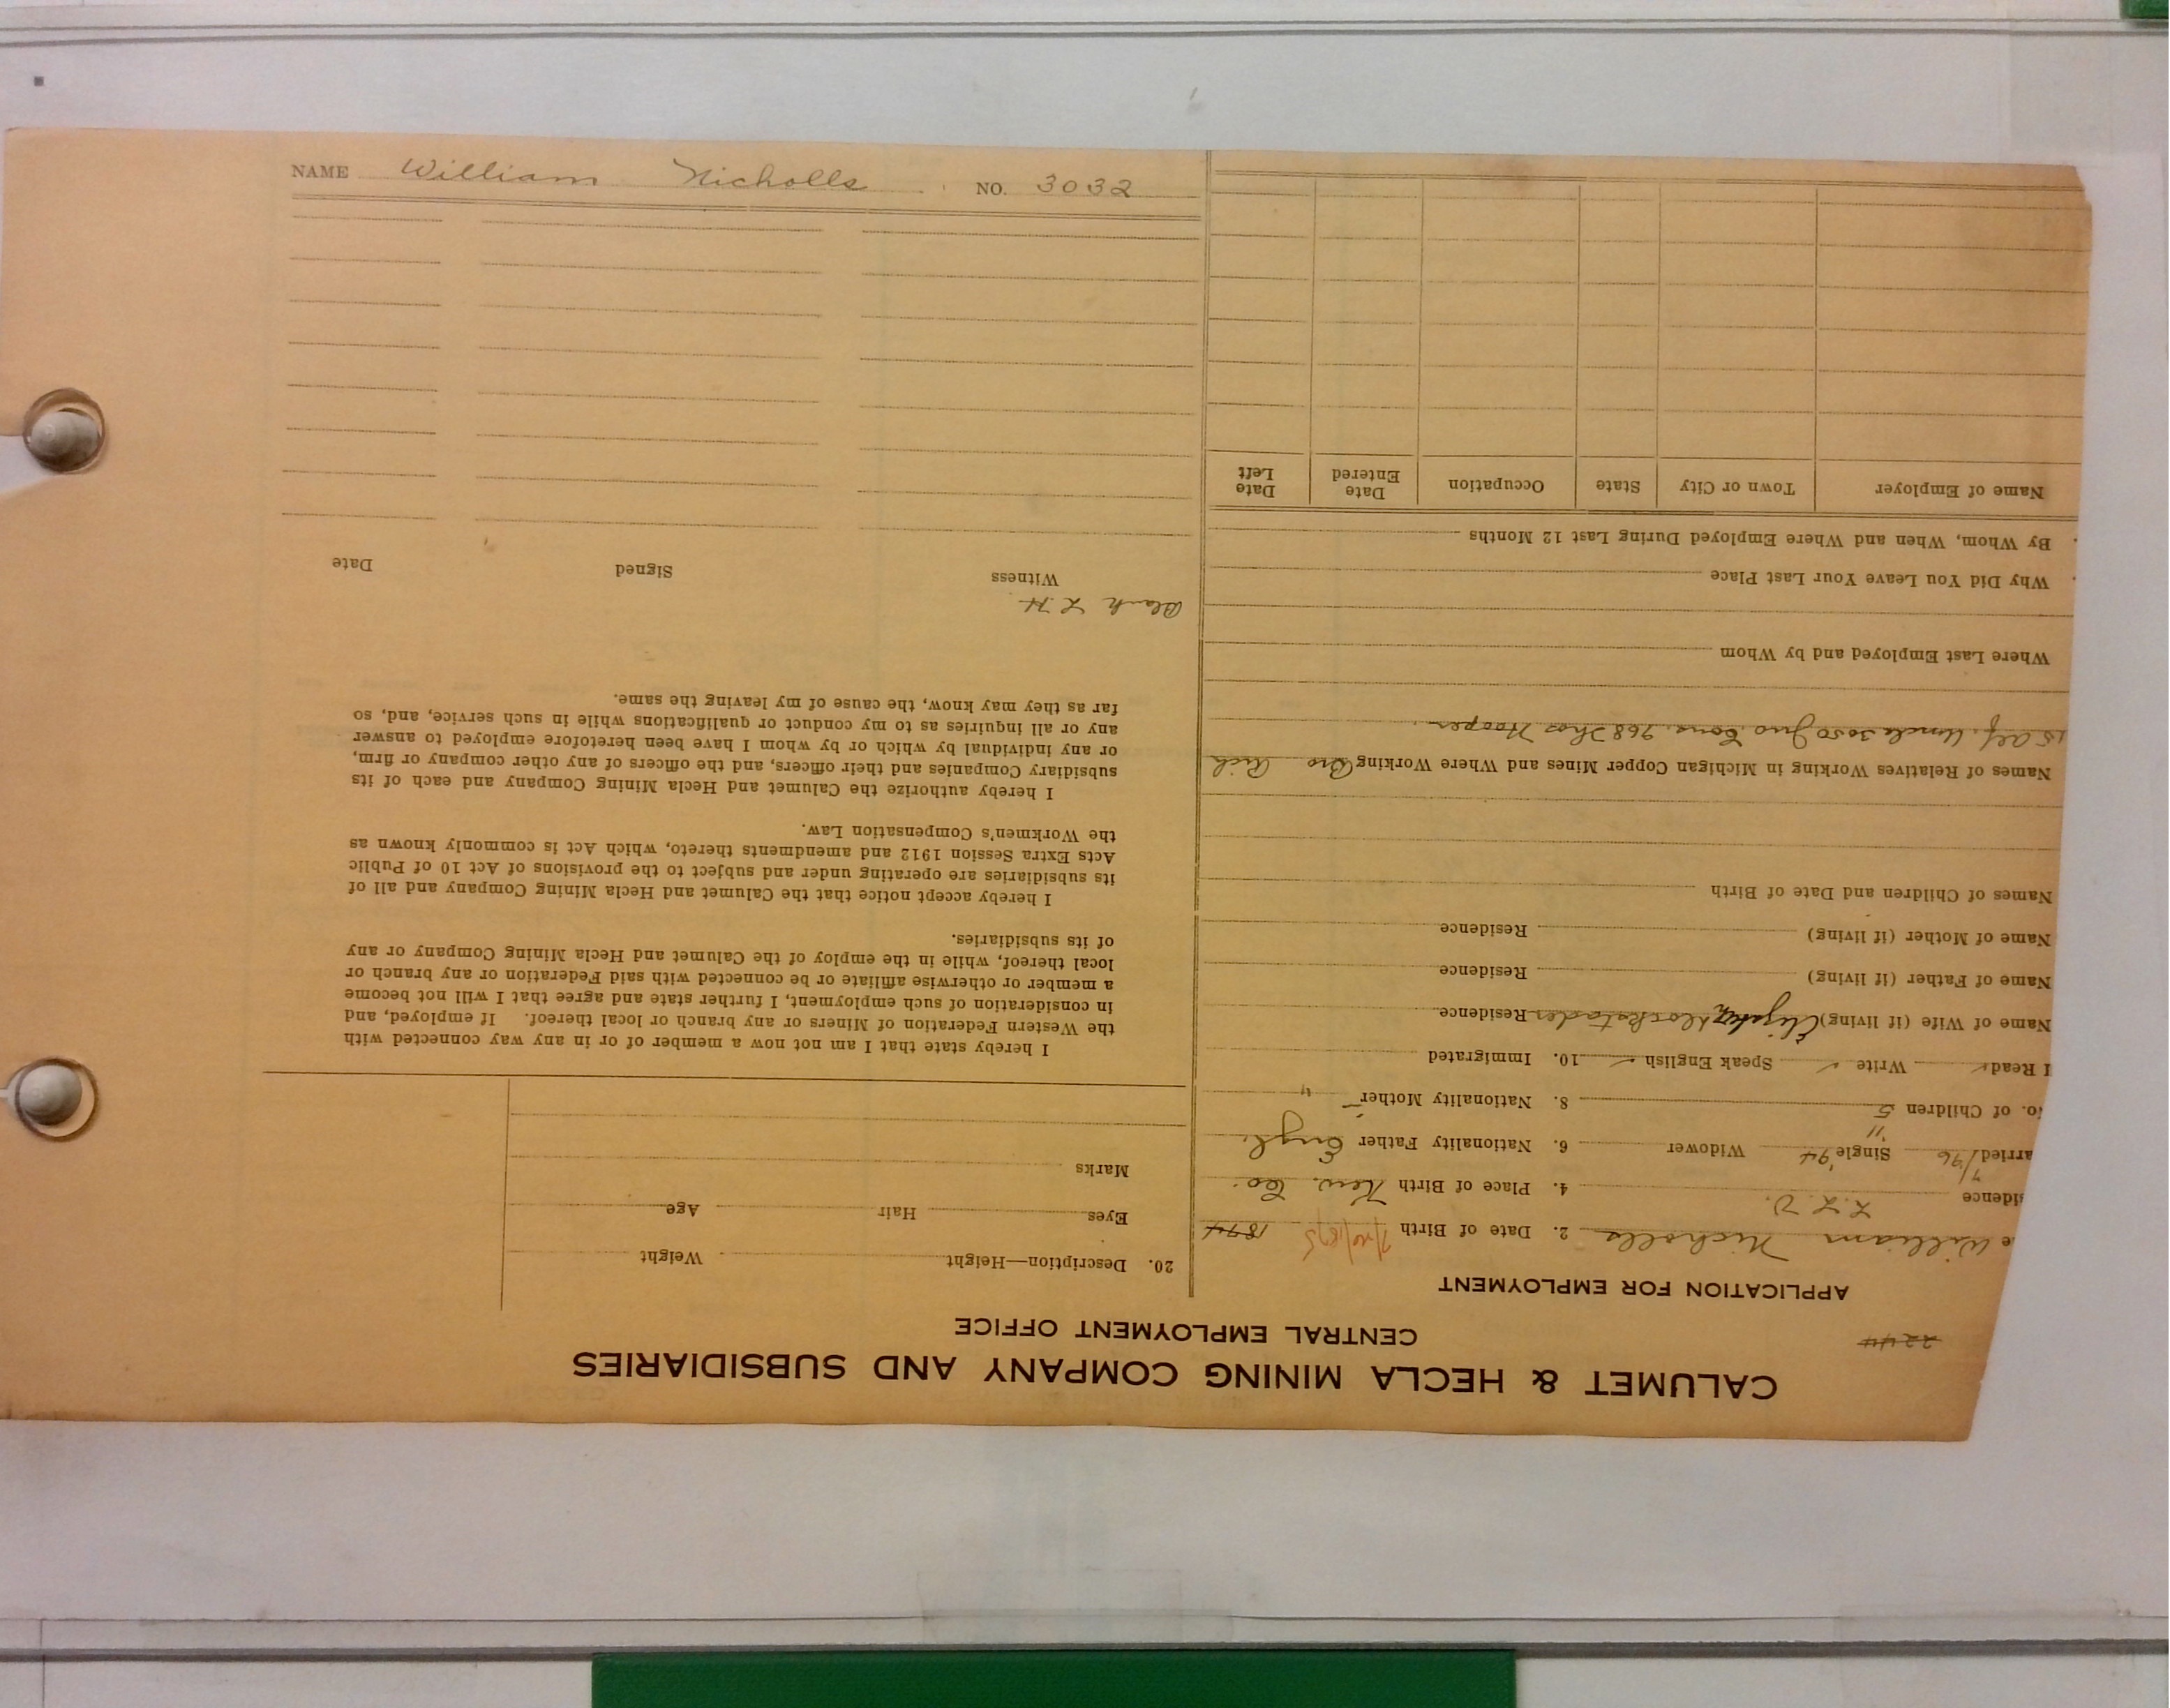 NAME William Nicholls NO. 3032
CALUMET & HECLA MINING COMPANY AND SUBSIDIARIES
CENTRAL EMPLOYMENT OFFICE
2244
APPLICATION FOR EMPLOYMENT
e William Nicholls 2. Date of Birth 1874
sidence L. L. 4. Place of Birth Kew. Co.
arried Single '94 Widower 6. Nationality Father Engl.
"
No. of Children 5 8. Nationality Mother "
I Read ✓ Write ✓ Speak English ✓ 10. Immigrated
Name of Wife (if living) Residence
Name of Father (if living) Residence
Name of Mother (if living) Residence
Names of Children and Date of Birth
Names of Relatives Working in Michigan Copper Mines and Where Working Bro Rich
Alf. Uncle 3050 Jno 968 Thos Hooper.
Where Last Employed and by Whom
Why Did You Leave Your Last Place
By Whom, When and Where Employed During Last 12 Months
Name of Employer Town or City State Occupation Date Entered Date Left
20. Description—Height Weight
Eyes Hair Age
Marks
I hereby state that I am not now a member of or in any way connected with
the Western Federation of Miners or any branch or local thereof. If employed, and
in consideration of such employment, I further state and agree that I will not become
a member or otherwise affiliate or be connected with said Federation or any branch or
local thereof, while in the employ of the Calumet and Hecla Mining Company or any
of its subsidiaries.
I hereby accept notice that the Calumet and Hecla Mining Company and all of
its subsidiaries are operating under and subject to the provisions of Act 10 of Public
Acts Extra Session 1912 and amendments thereto, which Act is commonly known as
the Workmen's Compensation Law.
I hereby authorize the Calumet and Hecla Mining Company and each of its
subsidiary Companies and their officers, and the officers of any other company or firm,
or any individual by which or by whom I have been heretofore employed to answer
any or all inquiries as to my conduct or qualifications while in such service, and, so
far as they may know, the cause of my leaving the same.
Witness Signed Date